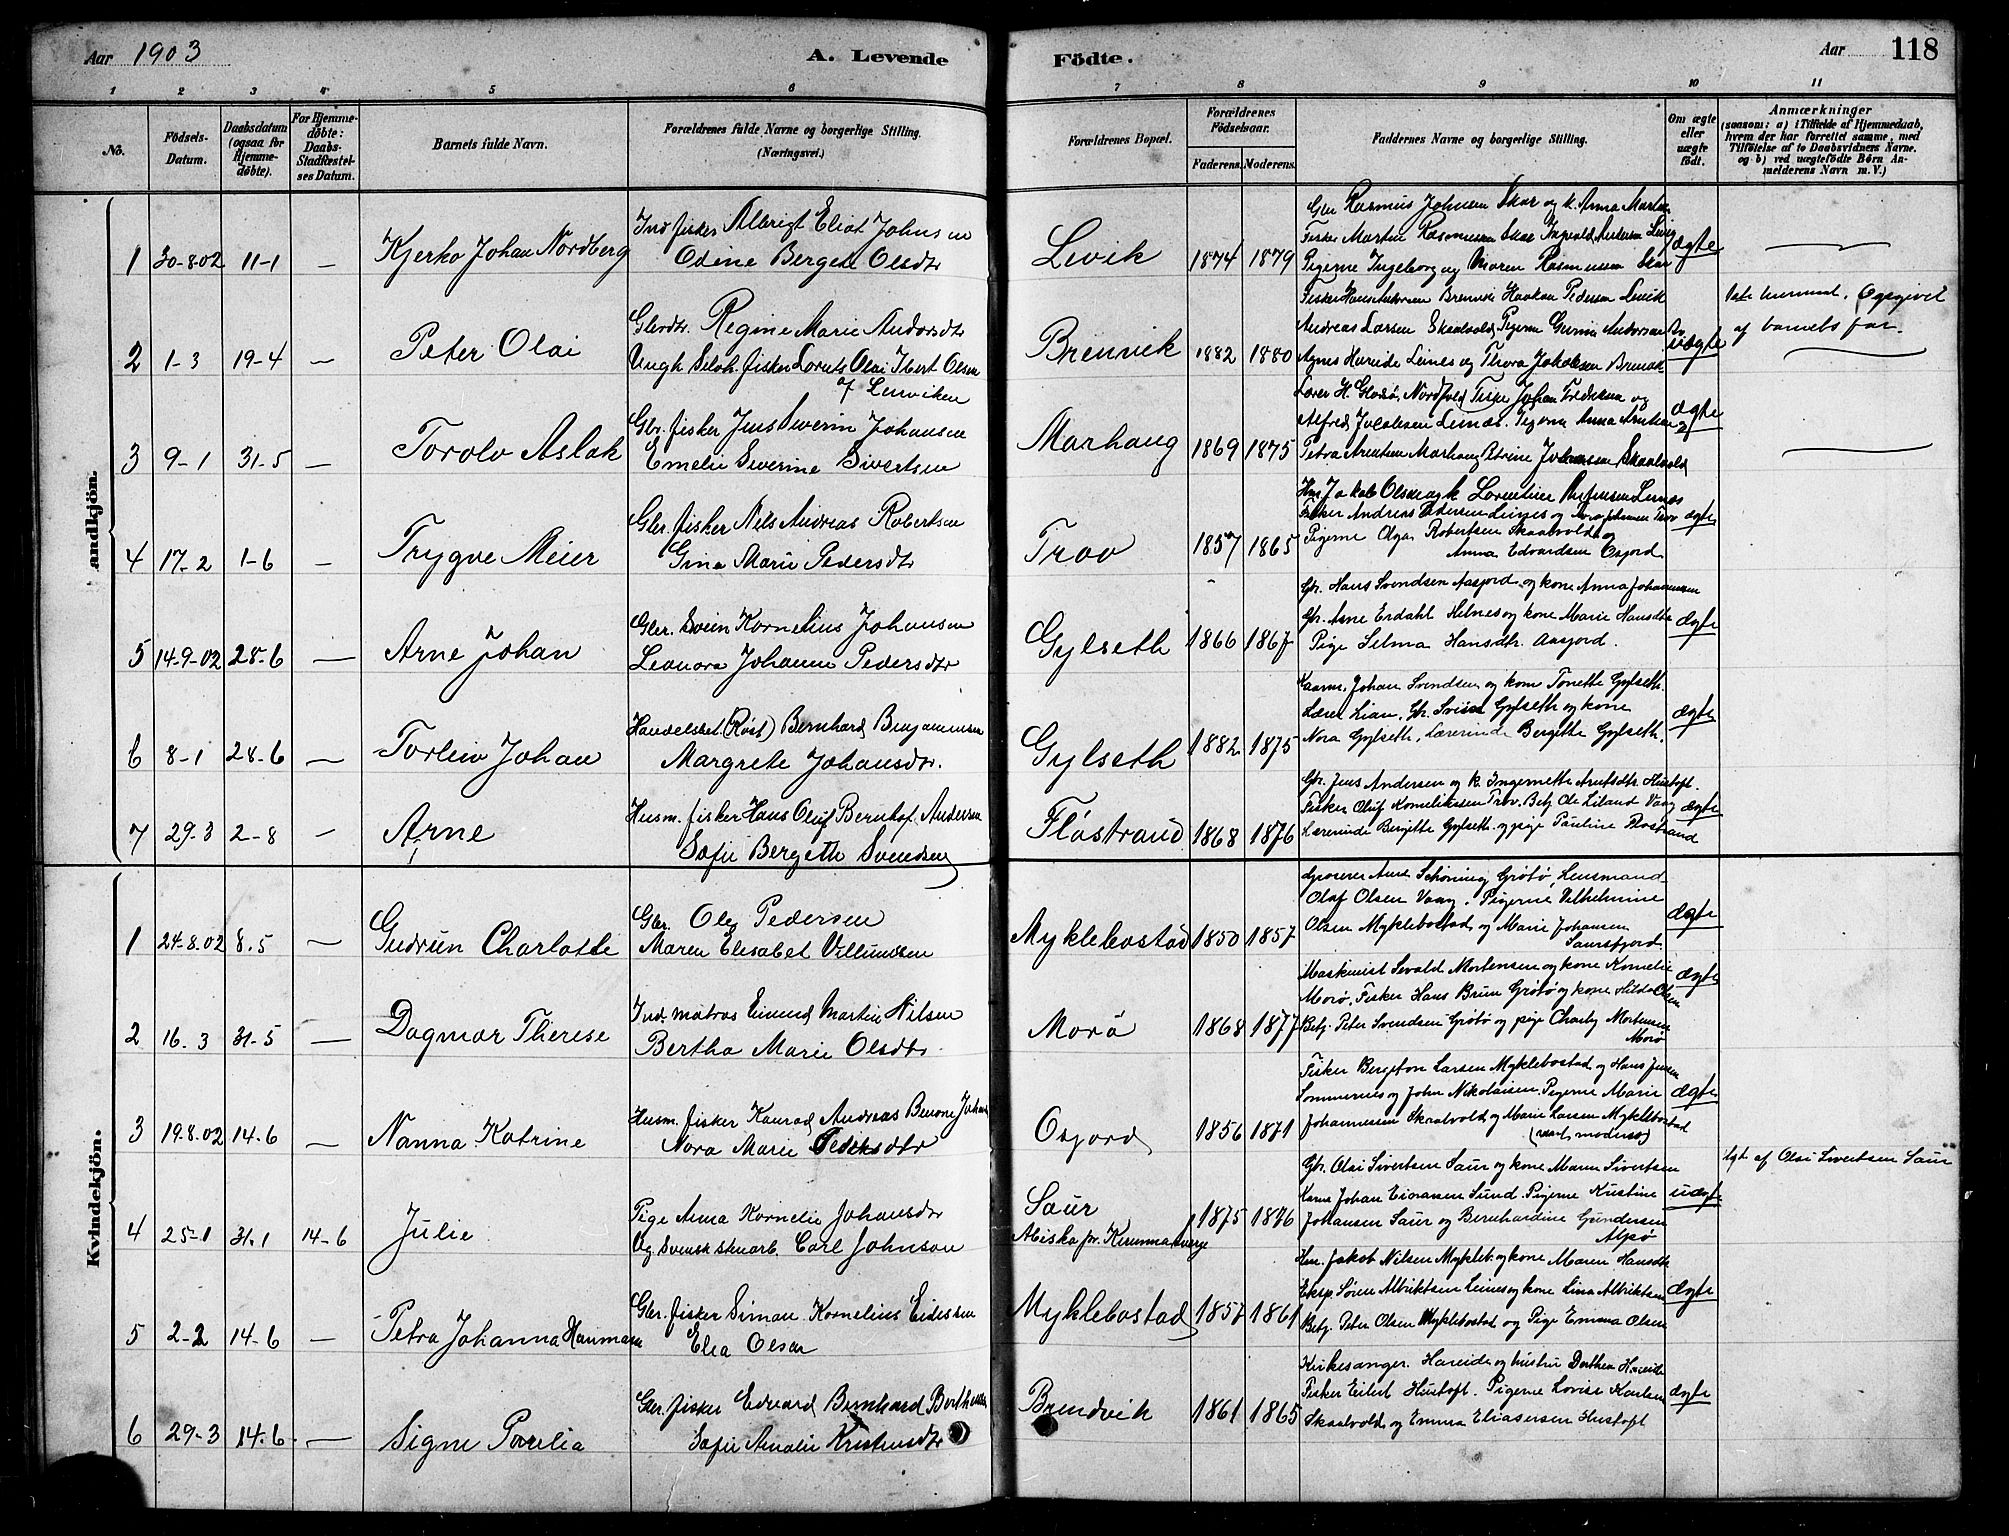 Aar 1903
A. Levende
Födte.
Aar
118
1 2 3 4 5 6 7 8 9 10 11
No.
Födsels-Datum.
Daabsdatum (ogsaa for Hjemmedöbte).
For Hjemmedöbte: Daabs-Stadfæstelses Datum.
Barnets fulde Navn.
Forældrenes fulde Navne og borgerlige Stilling.
(Næringsvei.)
Forældrenes Bopæl.
Forældrenes Födselsaar.
Faderens. Moderens.
Faddernes Navne og borgerlige Stilling.
Om ægte eller uægte födt.
Anmærkninger
(saasom: a) i Tilfælde af Hjemmedaab, hvem der har forrettet samme, med Tilföielse af to Daabsvidners Navne. og b) ved uægtefödte Börn Anmelderens Navn m. V.)
andkjön.
1 30-8.02 11-1 — Kjerko Johan Nordberg
Ind. fisker Albrigt Eliot Johnsen
Odine Bergete Olsdtr
Levik 1874 1879
Gbr Rasmus Johnsen Skar og k. Anna Martin
Fisker Martin Rasmussen Skar
Pigerne Ingeborg og Maren Rasmussen Skar
ægte
2 1-3 19-4 — Peter Olai
Gbrdtr. Regine Marie Andersdtr
Ungk. Selvh. fisker Lorents Olai Ibert Olsen
af Lenviken
Brennvik 1882 1880
Fisker Hans Andersen Brennvik Haakon Pedersen Levik
Andreas Larsen Skaalvold, Pigerne Gunine Andersen
Agnes Hareide Leines og Thora Jakobsen
uægte
Opgivet
af barnets far.
3 9-1 31-5 — Torolv Aslak
Gbr. fisker Jens Severin Johansen
Emelie Severine Sivertsen
Marhaug 1869 1875
Lærer H. Glodsø, Nordfold Fisker Johan Fredriksen og
Alfred Jakobsen Leinæs. Pigerne Anna Arntsen
Petra Arntsen Marhaug Petrine Johansen Skaalvold
ægte
4 17-2 1-6 — Trygve Meier
Gbr. fisker Nils Andreas Robertsen
Gina Marie Pedersdtr
Trov 1857 1865
Hm Jakob Olsen og k Lorentine
Fisker Andreas Pedersen Leines og Trov
Pigerne Olga Robertsen Skaalvold og
Anna Edvardsen Osfjord
ægte
5 14-9-02 28-6 — Arne Johan
Gbr. Svein Kornelius Johansen
Leonora Johanne Pedersdtr
Gylseth 1866 1867
Gbr. Hans Svendsen Aasjord og kone Anna Johannessen
Gbr. Arne Erdahl Helnes og kone Marie Hansdtr
Pige Selma Hansdtr. Aasjord.
ægte
6 8-1 28-6 — Torleiv Johan
Handelsbet. (Røst) Bernhard Benjaminsen
Margrete Johansdtr.
Gylseth 1882 1875
Kaarm. Johan Svendsen og kone Tonette Gylseth.
Lærer Lian, Gbr. Svein Gylseth og kone
Nora Gylseth, Lærerinde Bergitte Gylseth.
ægte
7 29-3 2-8 — Arne
Husm. fisker Hans Oluf Bernhof. Andersen
Sofie Bergeth Svendsen
Fløstrand 1868 1876
Gbr. Jens Andersen og k. Ingernette Arntsdtr Hustoft.
Fisker Oluf Korneliussen Trov. Betj. Ole Liland Vaag
Lærerinde Bergitte Gylseth og pige Pauline Flostrand
ægte
Kvindekjön.
1 24-8.02 8-5 — Gudrun Charlotte
Gbr. Ole Pedersen
Maren Elisabet Villumsen
Myklebostad 1850 1857
Schøning Grøtø, Lensmand
Olaf Olsen Vaag. Pigerne Vilhelmine
Olsen Myklebostad og Marie Johansen
Saursfjord.
ægte
2 16-3 31-5 — Dagmar Therese
Ind. matros Eivind Martin Nilsen
Bertha Marie Olsdtr
Morø 1868 1877
Maskinist Sevald Mortensen og kone Kornelie
Morø, Fisker Hans Bruun Grøtø og kone Hilda Olsen
Betj. Peter Svendsen Grøtø og pige Charly Mortensen
Morø
ægte
3 19.8.02 14-6 — Nanna Katrine
Husm. fisker Konrad Andreas Benoni Johan
Nora Marie Pedersdtr
Osfjord 1856 1871
Fisker Bergeton Larsen Myklebostad og Hans Jensen
Sommernes og John Nikolaisen. Pigerne Marie
Johannessen Skaalvold og Marie Larsen Myklebostad
(samt moderen)
ægte
4 25-1 31.1 14-6 Julie
Pige Anna Kornelie Johansdtr
Og Svensk stenarb. Carl Johnson
Saur
Abisko pr. Kirunna Sverge
1875 1876
Gbr. Olai Sivertsen Saur og kone Maren Sivertsen
Johan Sund. Pigerne Kristine
Johansen Saur og Bernhardine Gundersen
Alpø
uægte
Opgt af Olai Sivertsen Saur
5 2-2 14-6 — Petra Johanna Hanmann
Gbr. fisker Simon Kornelius Eidessen
Elea Olsen
Myklebostad 1857 1861
Hm. Jakob Nilsen Mykleb. og kone Maren Hansdtr
Eksp. Søren Albriktsen Leines og kone Lina Albriktsen
Betj. Peter Olsen Myklebostad og Pige Emma Olsen
ægte
6 29-3 14-6 — Signe Paulia
Gbr. fisker Edvard Bernhard Berthusen
Sofie Amalie Kristensdtr
Brendvik 1861 1865
Kirkesanger Hareide og hustru Dorthea Hareide
Fisker Eilert Hustoft. Pigerne Lovise Karlsen
Skaalvold og Emma Eliasersen Hustoft
ægte